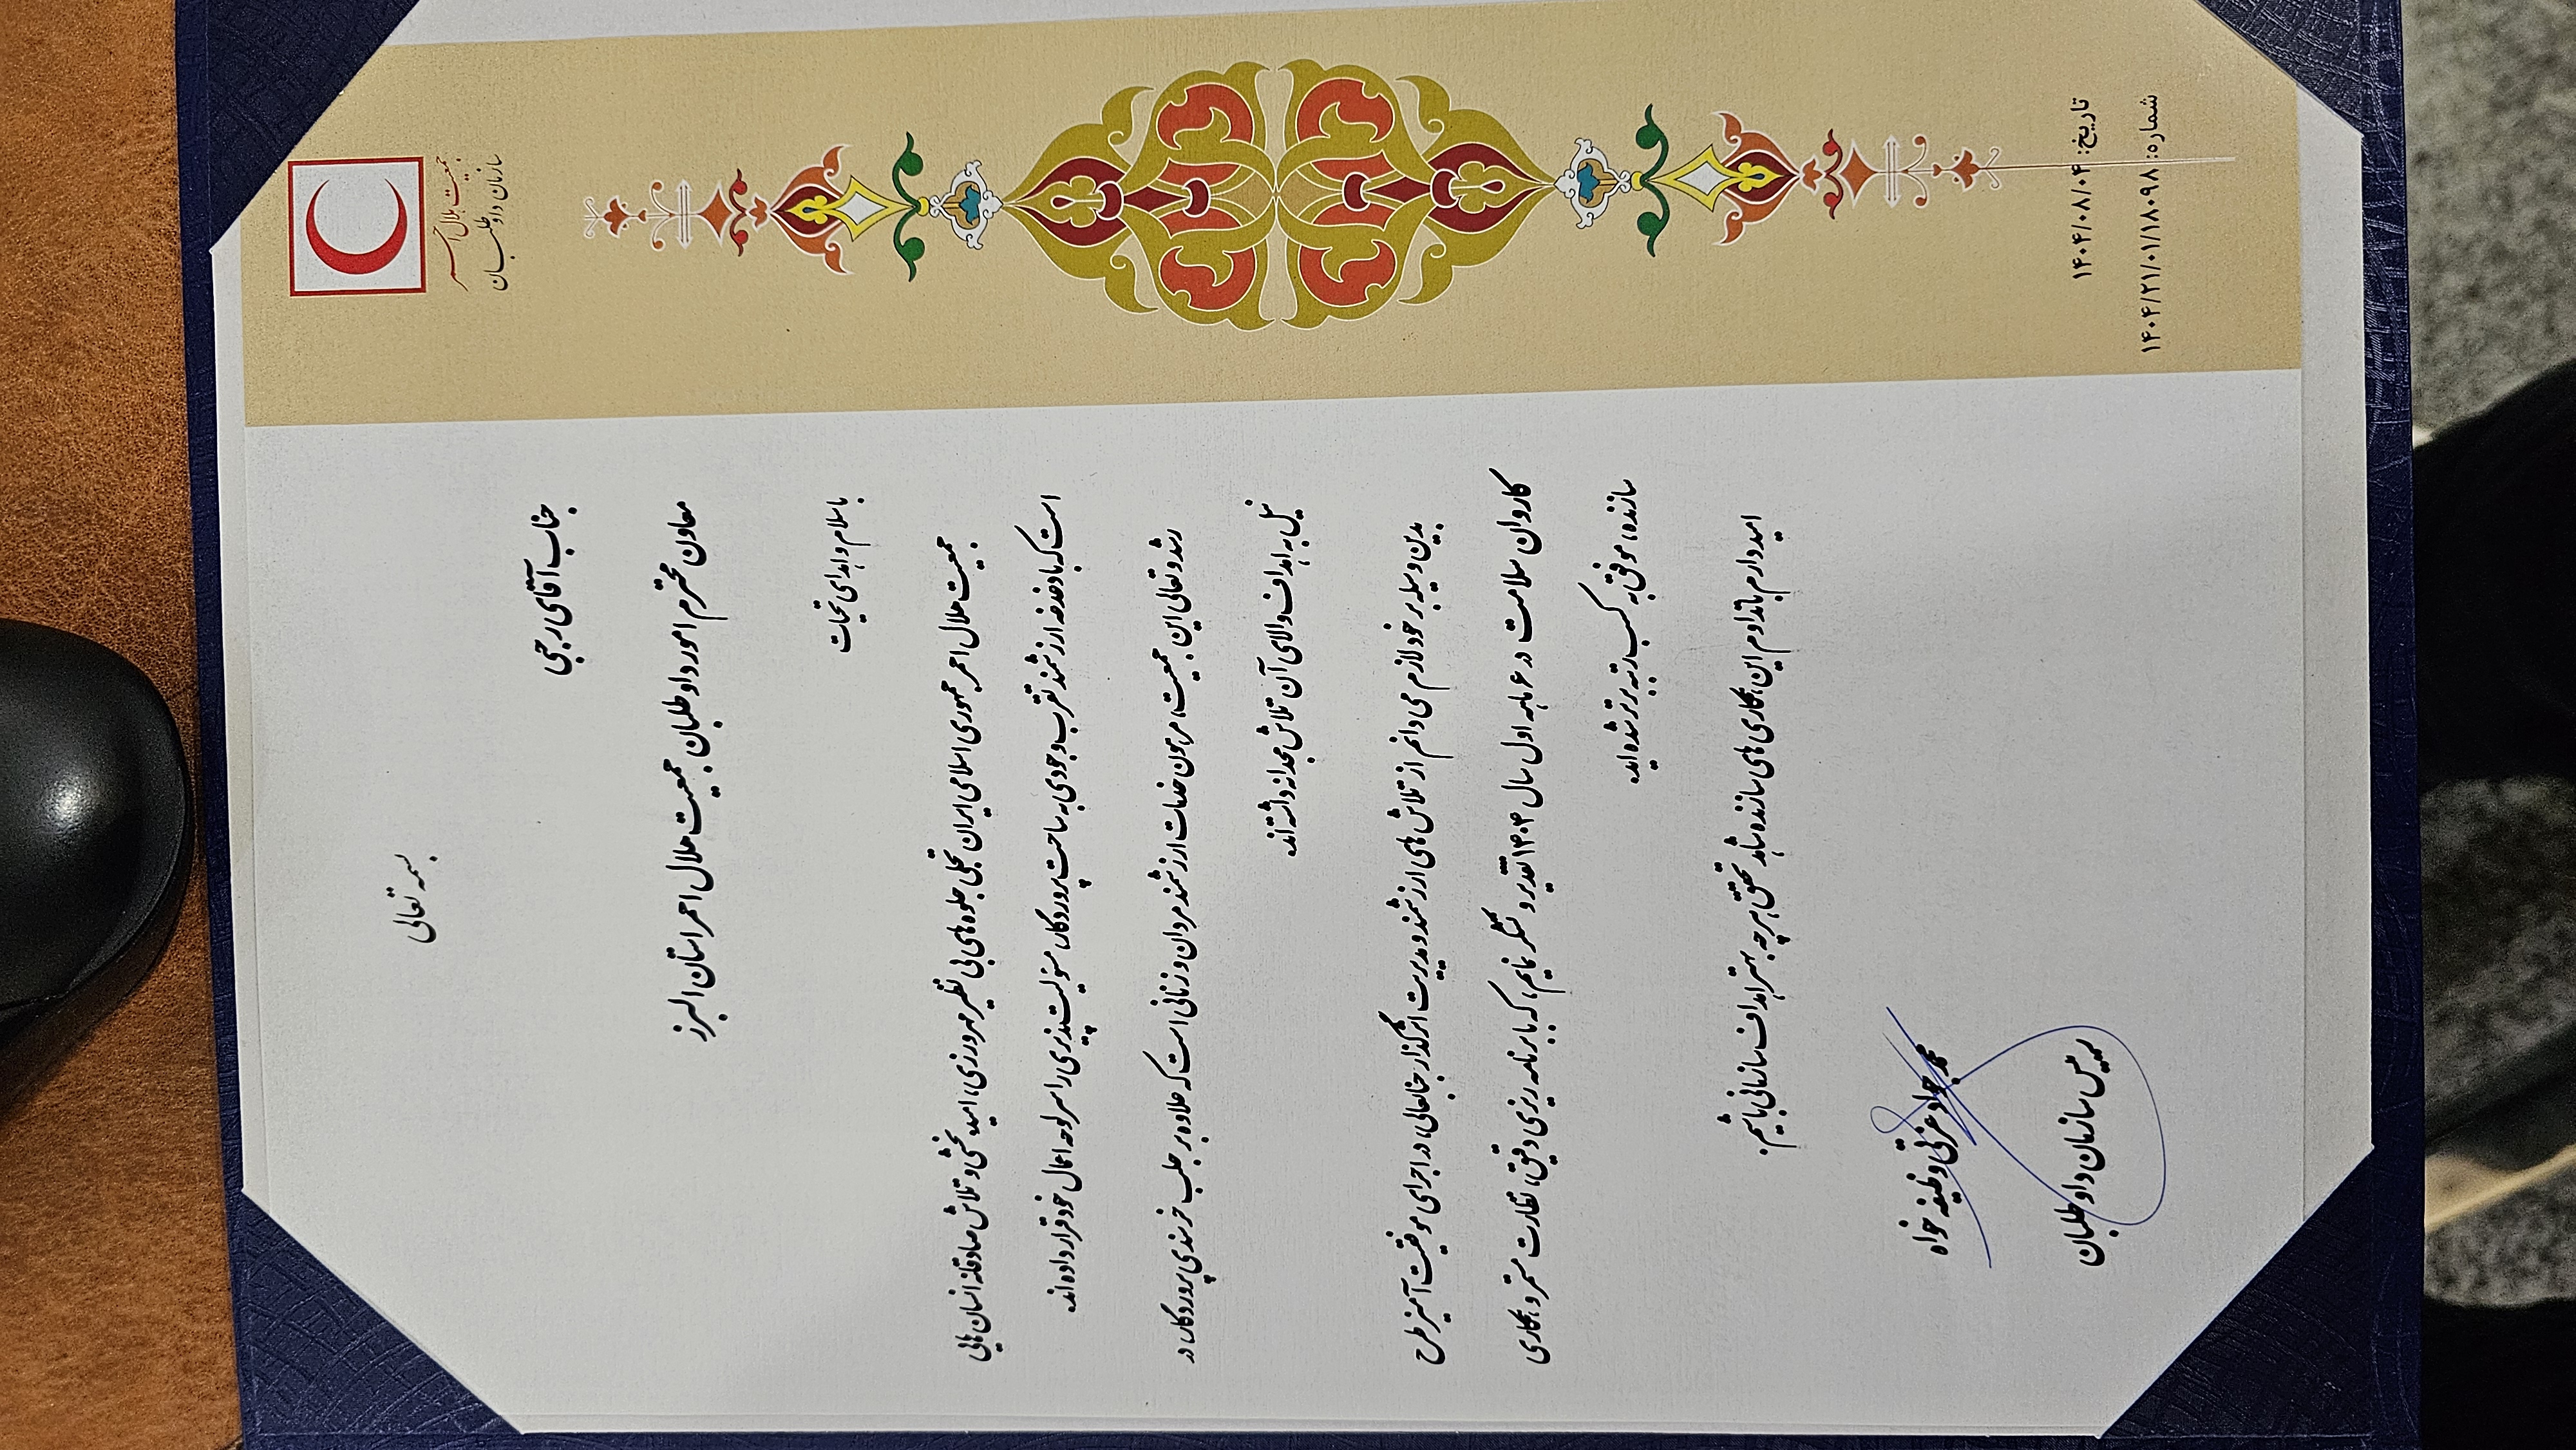 جمعیت هلال احمر
سازمان داوطلبان
تاریخ: ۱۴۰۴/۰۸/۰۴
شماره: ۱۴۰۴/۲۱/۰۱/۱۸۰۹۸
بسمه تعالی
جناب آقای رجبی
معاون محترم امور داوطلبان جمعیت هلال احمر استان البرز
باسلام و اهدای تحیات
جمعیت هلال احمر جمهوری اسلامی ایران تجلی جلوه های بی نظیر مهرورزی، امیدبخشی و تلاش صادقانه انسان هایی
است که با دغدغه ارزشمند تقرب وجودی به ساحت پروردگار، مسئولیت پذیری را سرلوحه اعمال خود قرار داده اند.
رشد و تعالی این جمعیت، مرهون خدمات ارزشمند مردان و زنانی است که علاوه بر جلب خرسندی پروردگار، در
نیل به اهداف والای آن تلاش مجدانه داشته اند.
بدین وسیله بر خود لازم می دانم از تلاش های ارزشمند و مدیریت اثرگذار جنابعالی، در اجرای موفقیت آمیز طرح
کاروان سلامت در ۶ ماهه اول سال ۱۴۰۴ تقدیر و تشکر نمایم، که با برنامه ریزی دقیق، نظارت مستمر و همکاری
سازنده، موفق به کسب رتبه برتر شده اید.
امید دارم با تداوم این همکاری های سازنده شاهد تحقق هرچه بهتر اهداف سازمانی باشیم.
محمدجواد عزتی وظیفه خواه
رییس سازمان داوطلبان